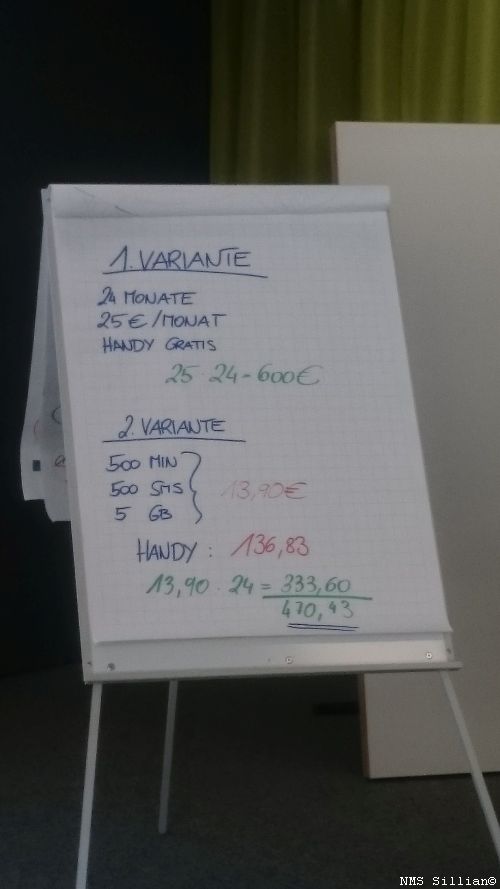 1. VARIANTE
24 MONATE
25 € / MONAT
HANDY GRATIS
25 · 24 = 600 €
2. VARIANTE
500 MIN
500 SMS
5 GB
13,90 €
HANDY : 136,83
13,90 · 24 = 333,60
470,43
NMS Sillian©